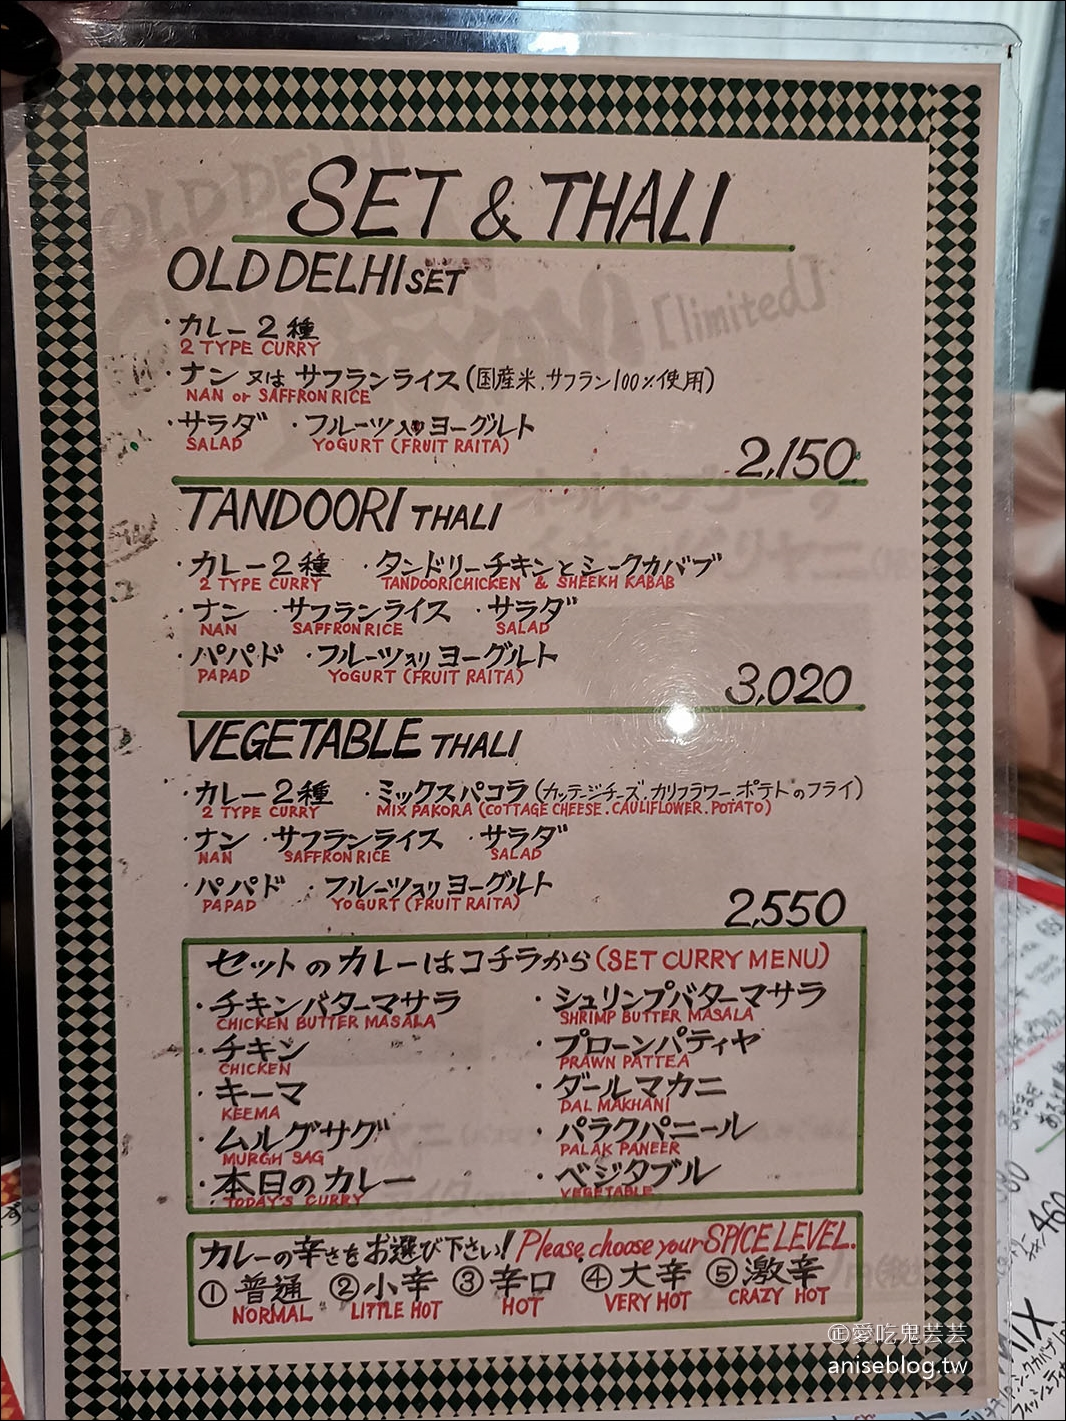 SET & THALI
OLD DELHI SET
・カレー2種
2 TYPE CURRY
・ナン 又は サフランライス(国産米.サフラン100%使用)
NAN or SAFFRON RICE
・サラダ ・フルーツ入りヨーグルト
SALAD YOGURT (FRUIT RAITA)
2,150
TANDOORI THALI
・カレー2種 ・タンドリーチキンとシークカバブ
2 TYPE CURRY TANDOORICHICKEN & SHEEKH KABAB
・ナン ・サフランライス ・サラダ
NAN SAFFRON RICE SALAD
・パパド ・フルーツ入りヨーグルト
PAPAD YOGURT (FRUIT RAITA)
3,020
VEGETABLE THALI
・カレー2種 ・ミックスパコラ(カッテージチーズ.カリフラワー.ポテトのフライ)
2 TYPE CURRY MIX PAKORA (COTTAGE CHEESE.CAULIFLOWER.POTATO)
・ナン ・サフランライス ・サラダ
NAN SAFFRON RICE SALAD
・パパド ・フルーツ入りヨーグルト
PAPAD YOGURT (FRUIT RAITA)
2,550
セットのカレーはコチラから(SET CURRY MENU)
・チキンバターマサラ ・シュリンプバターマサラ
CHICKEN BUTTER MASALA SHRIMP BUTTER MASALA
・チキン ・プローンパティヤ
CHICKEN PRAWN PATTEA
・キーマ ・ダールマカニ
KEEMA DAL MAKHANI
・ムルグサグ ・パラクパニール
MURGH SAG PALAK PANEER
・本日のカレー ・ベジタブル
TODAY'S CURRY VEGETABLE
カレーの辛さをお選び下さい! Please, choose your SPICE LEVEL.
①普通 ②小辛 ③辛口 ④大辛 ⑤激辛
NORMAL LITTLE HOT HOT VERY HOT CRAZY HOT
[limited]
460
愛吃鬼芸芸
aniseblog.tw